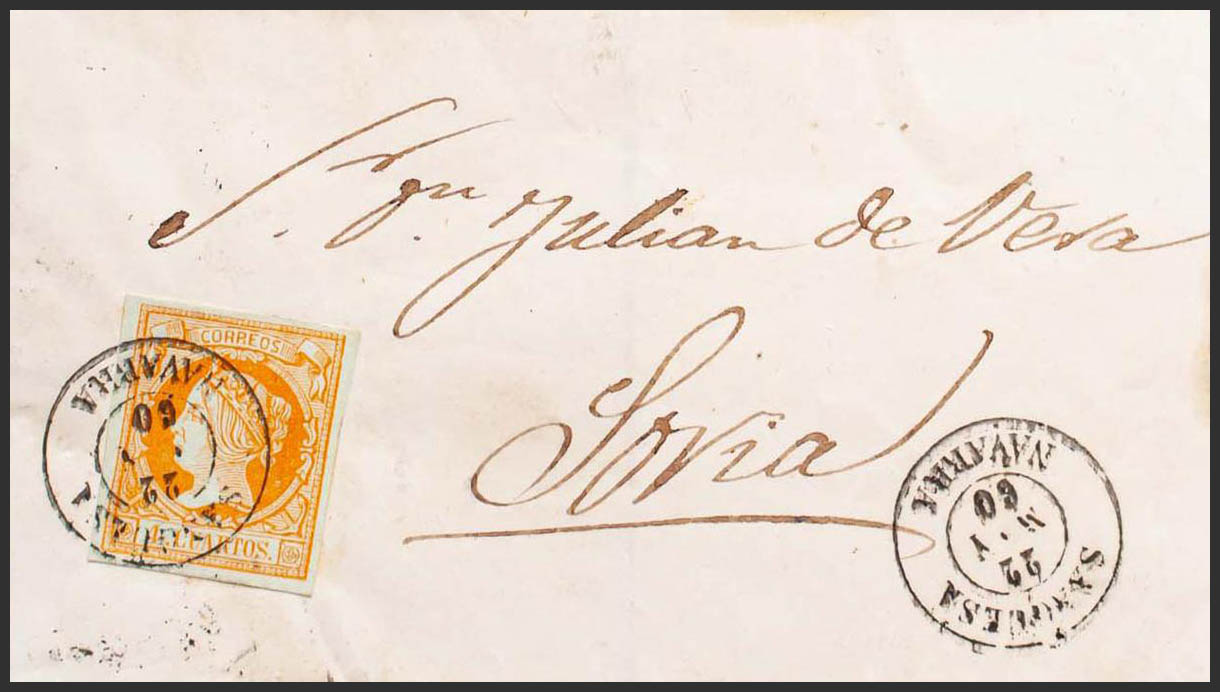 S. Dn. Julian de Vera
Soria
CORREOS
CUARTOS.
NAVARRA
60
22
SANGUESA
NAVARRA
60
22